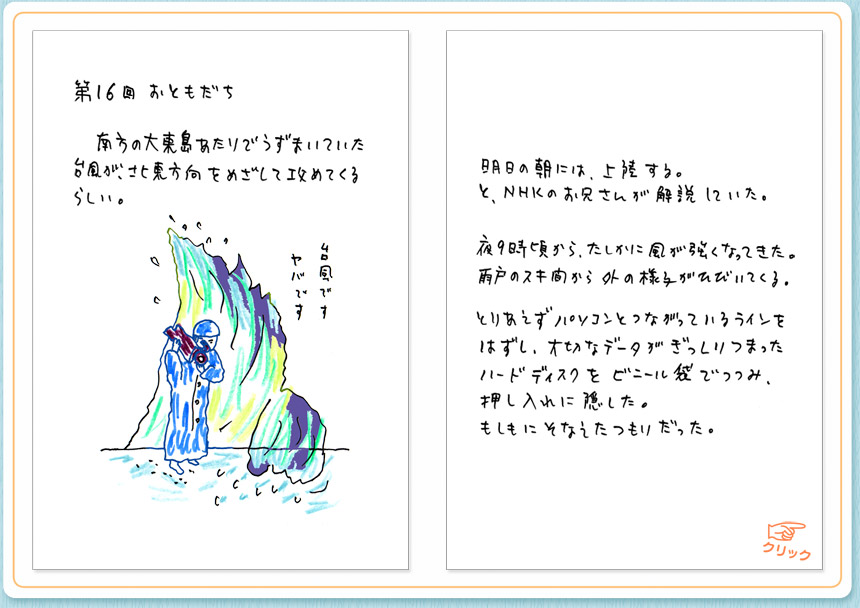 第16回 おともだち
南方の大東島あたりでうずまいていた
台風が、北東方向をめざして攻めてくる
らしい。
台風です
ヤバです
明日の朝には、上陸する。
と、NHKのお兄さんが解説していた。
夜9時頃から、たしかに風が強くなってきた。
雨戸のスキ間から外の様子がひびいてくる。
とりあえずパソコンとつながっているラインを
はずし、大切なデータがぎっしりつまった
ハードディスクをビニール袋でつつみ、
押し入れに隠した。
もしもにそなえたつもりだった。
クリック